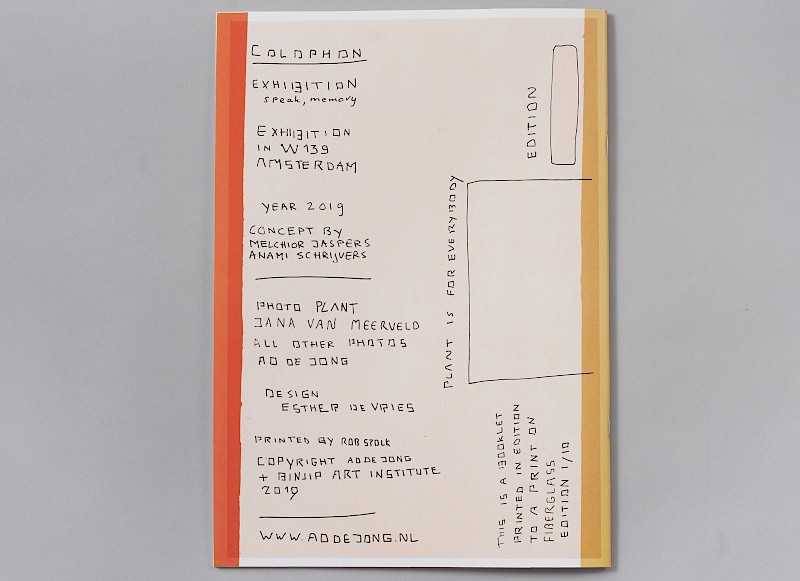 COLOPHON
EXHIBITION
speak, memory
EXHIBITION
IN W139
AMSTERDAM
YEAR 2019
CONCEPT BY
MELCHIOR JASPERS
ANAMI SCHRIJVERS
PHOTO PLANT
JANA VAN MEERVELD
ALL OTHER PHOTOS
AD DE JONG
DESIGN
ESTHER DE VRIES
PRINTED BY ROB STOLK
COPYRIGHT AD DE JONG
+ BINSIP ART INSTITUTE
2019
WWW.ADDEJONG.NL
EDITION
PLANT IS FOR EVERYBODY
THIS IS A BOOKLET
PRINTED IN EDITION
TO A PRINT ON
FIBERGLASS
EDITION 1/10